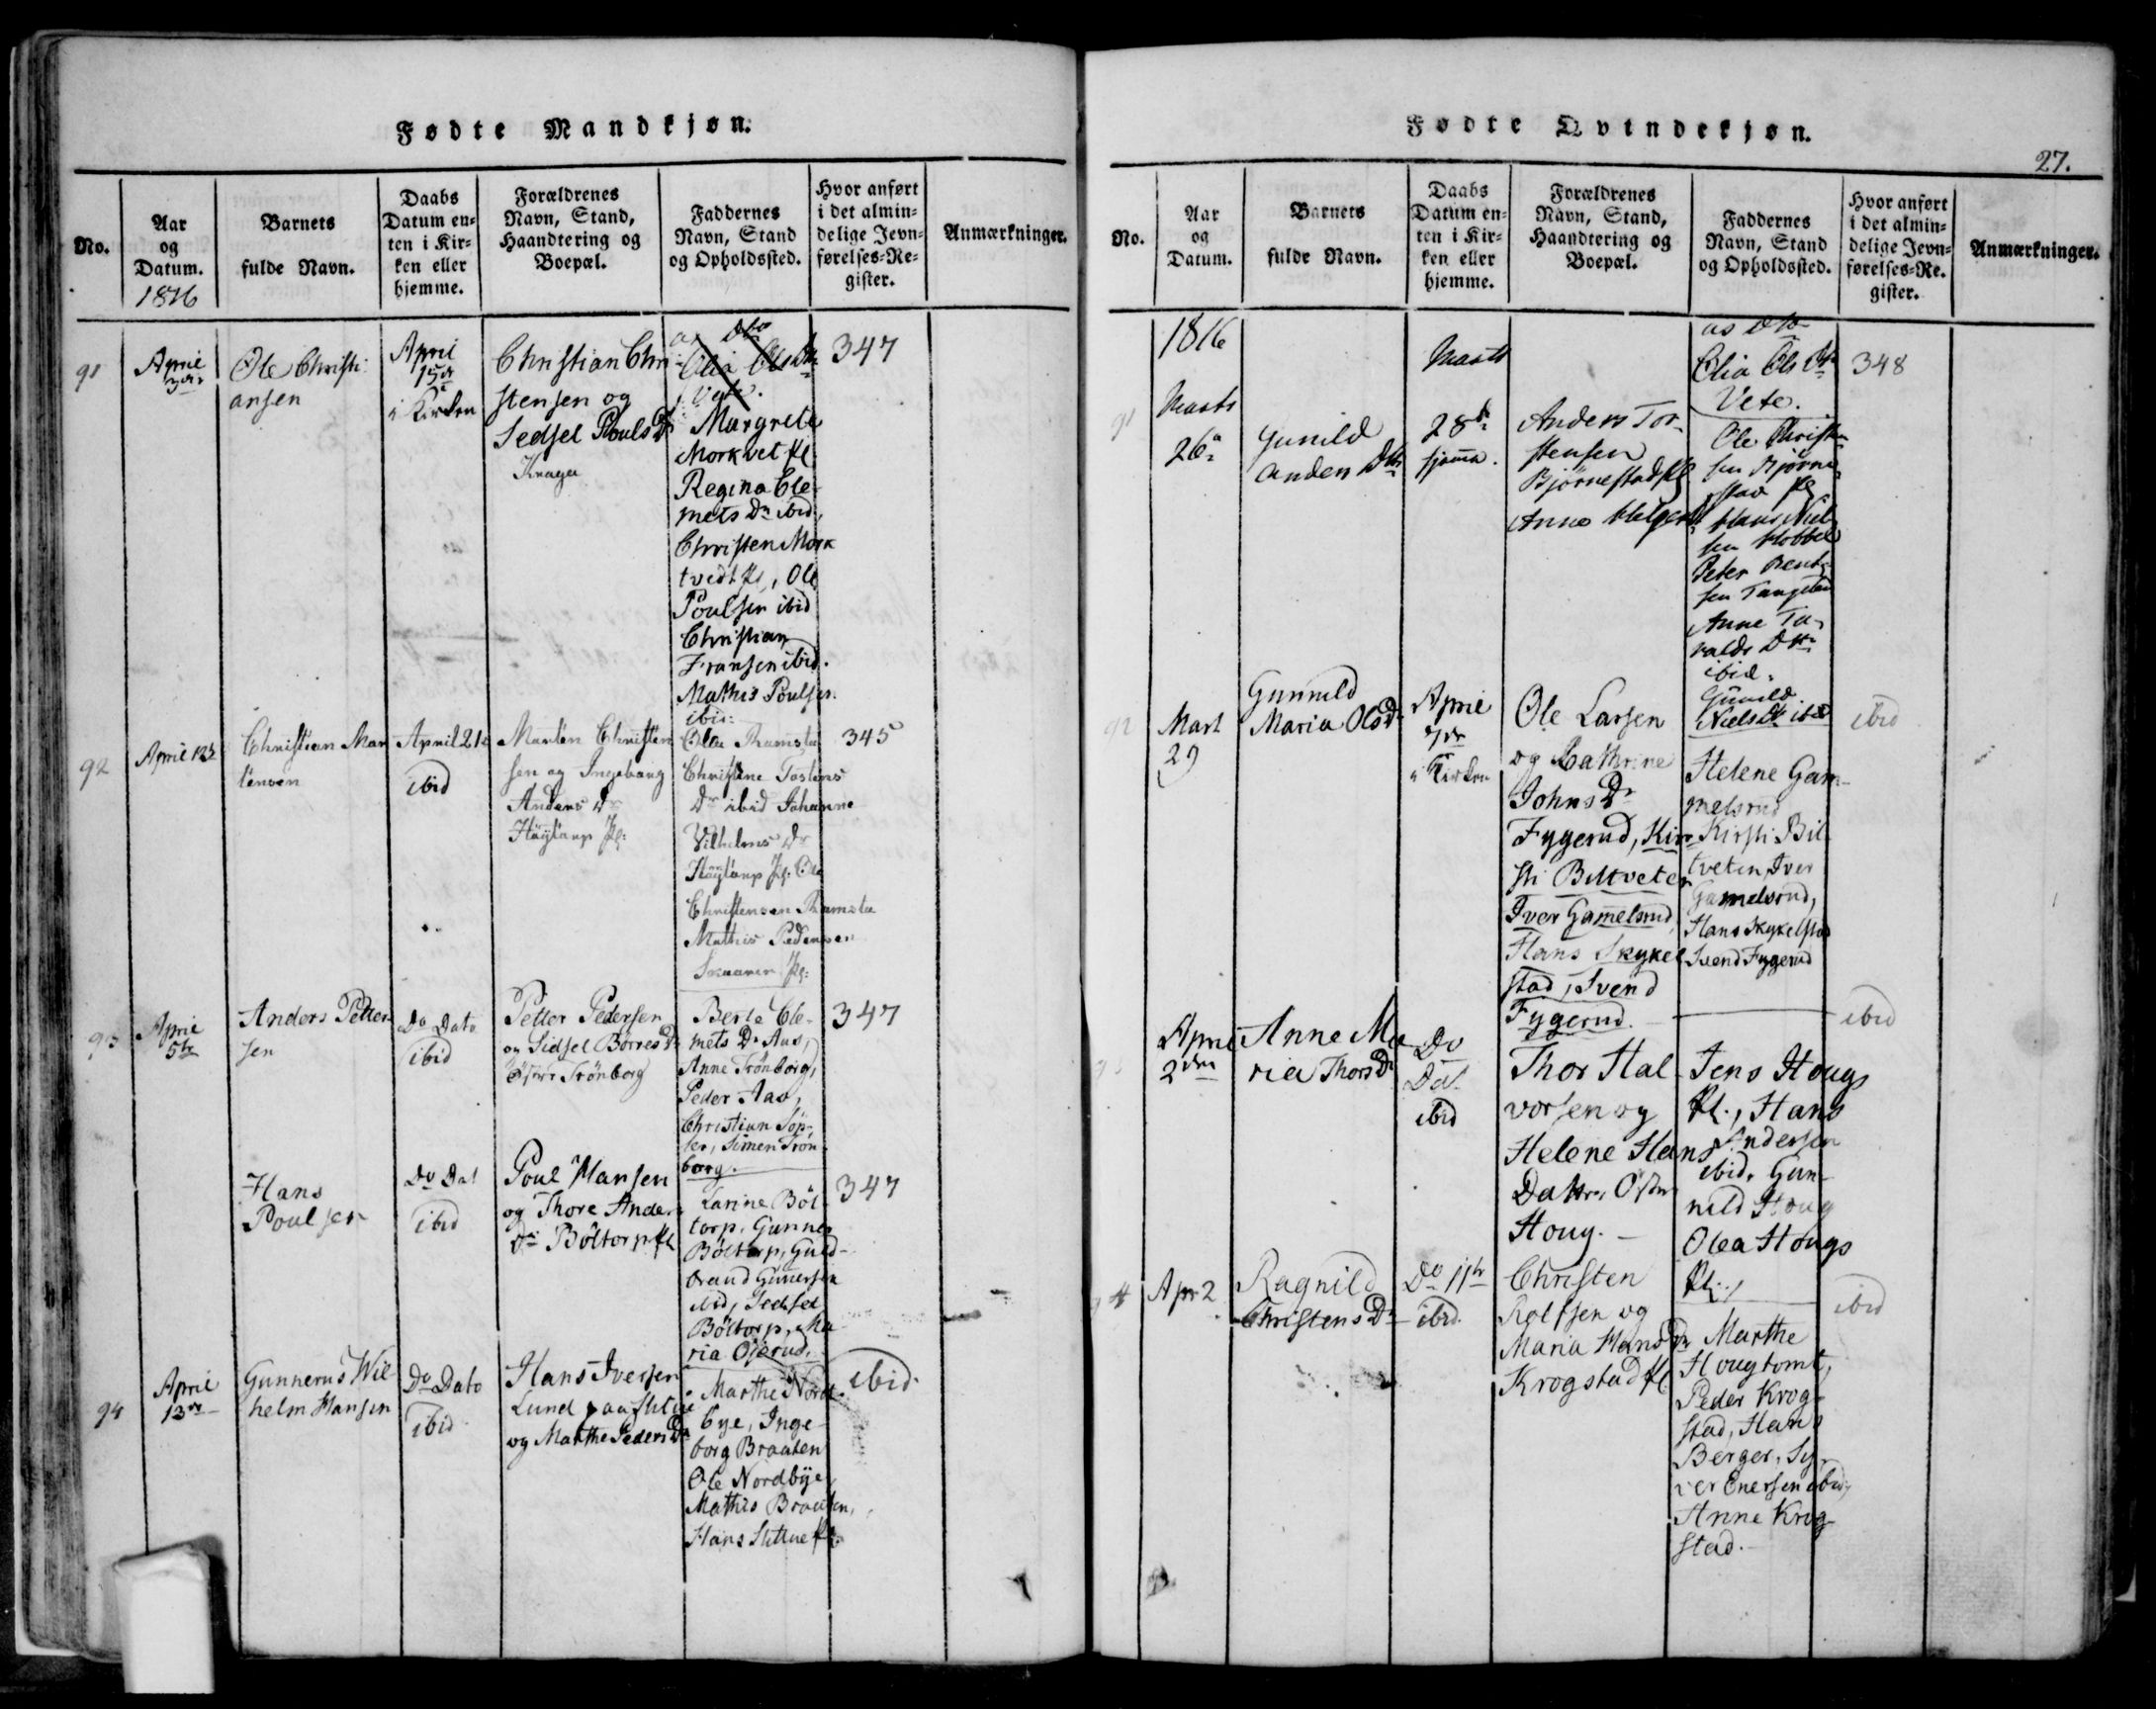 Fødte Mandkjøn.
No.
Aar
og
Datum.
1816
Barnets
fulde Navn.
Daabs
Datum en-
ten i Kir-
ken eller
hjemme.
Forældrenes
Navn, Stand,
Haandtering og
Boepæl.
Faddernes
Navn, Stand
og Opholdssted.
Hvor anført
i det almin-
delige Jevn-
førelses-Re-
gister.
Anmærkninger.
91
April
3die
Ole Christi-
ansen
April
15de
i Kirken
Christian Chri-
stensen og
Sedsel Pouls Dr
Krager
Olia Ols Dtr
Vete.
Margrete
Morkvet Pl
Regina Cle-
mets Dr ibid,
Christen Mork
tvedt Pl, Ole
Poulsen ibid
Christian
Fransen ibid.
Mathis Poulsen
ibid:
347
92
April 12te
Christian Mar
tensen
April 21de
ibid
Marten Christen
sen og Ingebaarg
Anders Dr
Høytorp Pl:
Olea Ramsta
Christine Tostens
Dr ibid Johanne
Vilhelms Dr
Høytorp Pl: Ole
Christensen Ramsta
Mathis Pedersen
Skaaren Pl:
345
93
April
5te
Anders Petter
sen
Do Dato
ibid
Petter Pedersen
og Sidsel Børres Dr
Østre Trønborg
Berte Cle-
mets Dr Aas,
Anne Trönborg,
Peder Aas,
Christian Söp-
ler, Simen Trön
borg.
347
Hans
Poulsen
Do Dat
ibid
Poul Hansen
og Thore Anders
Dr Böltorp Pl
Karine Böl-
torp, Gunner
Böltorp, Guld-
brand Gunersen
ibid, Sedsel
Böltorp, Ma-
ria Ojerud.
347
94
April
13de
Gunnerus Wil
helm Hansen
Do Dato
ibid
Hans Iversen
Lund paa Slitue
og Marthe Peders Dr
Marthe Nord-
bye, Inge-
borg Braaten
Ole Nordbye
Mathis Braaten,
Hans Slitue Pl.
ibid.
Fødte Qvindekjøn.
27.
No.
Aar
og
Datum.
Barnets
fulde Navn.
Daabs
Datum en-
ten i Kir-
ken eller
hjemme.
Forældrenes
Navn, Stand,
Haandtering og
Boepæl.
Faddernes
Navn, Stand
og Opholdssted.
Hvor anført
i det almin-
delige Jevn-
førelses-Re-
gister.
Anmærkninger.
91
1816
Marts
26de
Gunild
Anders Dtr
Marts
28de
hjemme.
Anders Tor-
stensen
Bjørnestad Pl
Anne Helgers Dr
Olia Ols Dtr
Vete.
Ole Christen
sen Bjørne
stad Pl
Hans Niel
sen Hobbel
Peter Bent-
sen Tangelan
Anne To-
ralds Dtr
ibid.
Gunild
Niels Dtr ibid
348
92
Mart
29
Gunnild
Maria Ols Dr
April
7de
i Kirken
Ole Larsen
og Cathrine
Johns Dr
Fygerud, Kir-
sti Biltveten
Iver Gamelsrud,
Hans Skykel
stad, Svend
Fygerud.
Helene Gam-
melsrud
Kirsti Bil
tveten, Iver
Gamelsrud,
Hans Skykelstad
Svend Fygerud
ibid
93
April
2den
Anne Ma
ria Thors Dr
Do
Dat
ibid
Thor Hal
vorsen og
Helene Hans
Datter Østre
Houg.
Jens Hougs
Pl., Hans
Andersen
ibid. Gun-
nild Houg
Olea Hougs
Pl.,
ibid
94
Apr 2
Ragnild
Christens Dr
Do 11te
ibid.
Christen
Rolfsen og
Maria Hans Dr
Krogstad Pl
Marthe
Hougtomt,
Peder Krog-
stad, Hans
Berger, Sy-
ver Enersen ibid,
Anne Krog
stad.
ibid